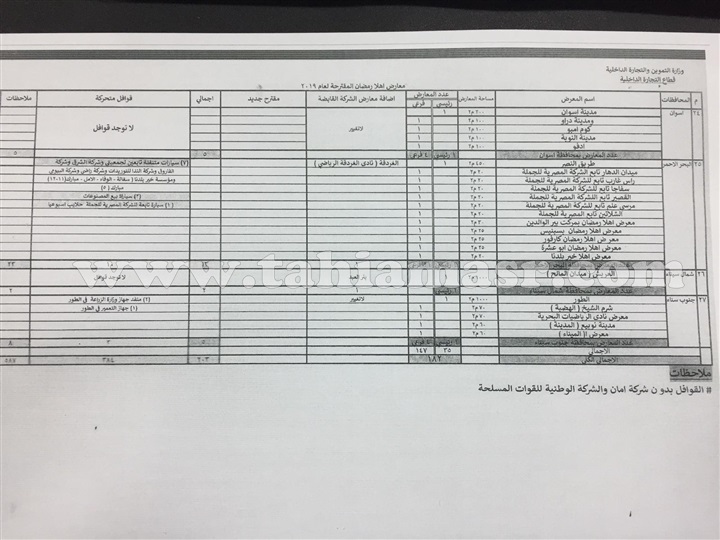 وزارة التموين والتجارة الداخلية
قطاع التجارة الداخلية
معارض اهلا رمضان المقترحة لعام ٢٠١٩
م المحافظات اسم المعرض مساحة المعارض عدد المعارض رئيسى فرعى اضافة معارض الشركة القابضة مقترح جديد اجمالي قوافل متحركة ملاحظات
٢٤ اسوان مدينة اسوان ٢٠٠ م٢ ١ لاتغيير لا توجد قوافل
ومدينة دراو ٢٠٠ م٢ ١
كوم امبو ١٠٠ م٢ ١
مدينة النوبة ١٠٠ م٢ ١
ادفو ١٠٠ م٢ ١
عدد المعارض بمحافظة اسوان ١ رئيسى ٤ فرعى ٥ ٥
٢٥ البحر الاحمر طريق النصر ٤٥٠ م٢ ١ الغردقة ( نادى الغردقة الرياضي ) (٧) سيارات متنقلة تابعين لجمعيتي وشركة الشرق وشركة
ميدان الدهار تابع الشركة المصرية للجملة ٢٠ م٢ ١ الفاروق وشركة الندا للتوريدات وشركة راضى وشركة البيومى
راس غارب تابع للشركة المصرية للجملة ٢٠ م٢ ١ ومؤسسة خير بلدنا ( سفالة - الوفاء - الامل - مبارك
سفاجا تابع للشركة المصرية للجملة ٢٠ م٢ ١ مبارك (٥
القصير تابع للشركة المصرية للجملة ٢٠ م٢ ١ (٣) سيارة بيع المصنوعات
مرسى علم تابع للشركة المصرية للجملة ٢٠ م٢ ١ (١) سيارة تابعة للشركة المصرية للجملة حلايب اسبوعيا
الشلاتين تابع للشركة المصرية للجملة ٢٠ م٢ ١
معرض اهلا رمضان بمركت بير الوالدين ٣٠ م٢ ١
معرض اهلا رمضان بسبنيس ٢٥ م٢ ١
معرض اهلا رمضان كارفور ٢٥ م٢ ١
معرض اهلا رمضان ابو عشرة ٢٠ م٢ ١
معرض اهلا خير بلدنا ٢٠ م٢ ١
٢٣
٢٦ شمال سيناء العريش ( ميدان المالح ) ١ بئر العبد لا توجد قوافل
عدد المعارض بمحافظة شمال سيناء ١ رئيسى ١ ٢ ٢
٢٧ جنوب سيناء الطور ١٠٠٠ م٢ ١ لاتغيير (٢) منفذ جهاز وزارة الزراعة في الطور
شرم الشيخ ( الهضبة ) ٧٠ م٢ ١ (١) جهاز التعمير في الطور
معرض نادى الرياضيات البحرية ٧٠ م٢ ١
مدينة نويبع ( المدينة ) ٦٠ م٢ ١
معرض ا( الميناء ) ٦٠ م٢ ١
عدد المعارض بمحافظة جنوب سيناء ١ رئيسى ٤ فرعى ٥ ٣ ٨
الاجمالي ٣٥ ١٤٧
الاجمالي الكلى ١٨٢ ٢٠٣ ٣٨٤ ٥٨٧
ملاحظات
# القوافل بدون شركة امان والشركة الوطنية للقوات المسلحة
www.tahiamasr.com